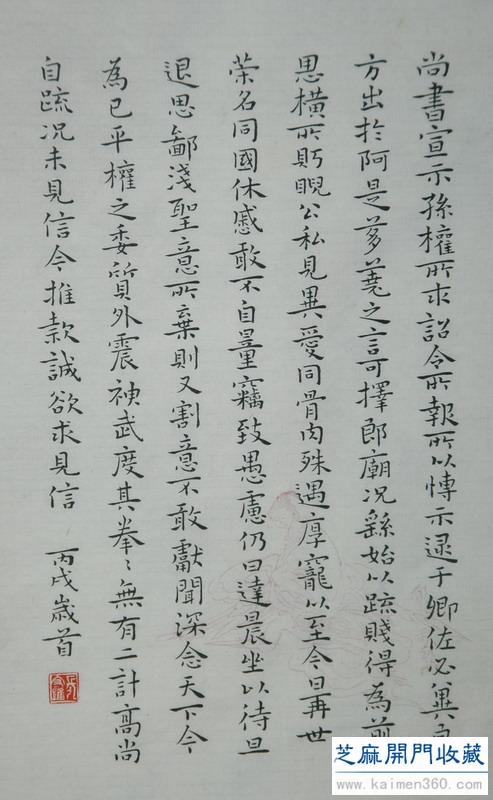 尚書宣示孫權所求詔令所報所以博示逮于卿佐必冀良
方出於阿是芻蕘之言可擇郎廟况繇始以疏賤得為前
恩橫所眄睨公私見異愛同骨肉殊遇厚寵以至今日再世
榮名同國休慼敢不自量竊致愚慮仍日達晨坐以待旦
退思鄙淺聖意所棄則又割意不敢獻聞深念天下今
為已平權之委質外震神武度其拳〻無有二計高尚
自疏况未見信今推款誠欲求見信 丙戌歲首
芝麻開門收藏
www.kaimen360.com